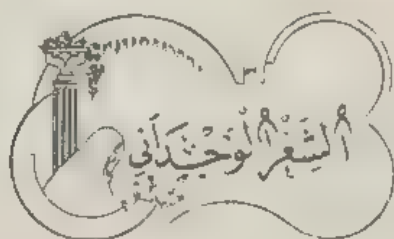 اَلشِّعْرُ اَلْوِجْدَانِي